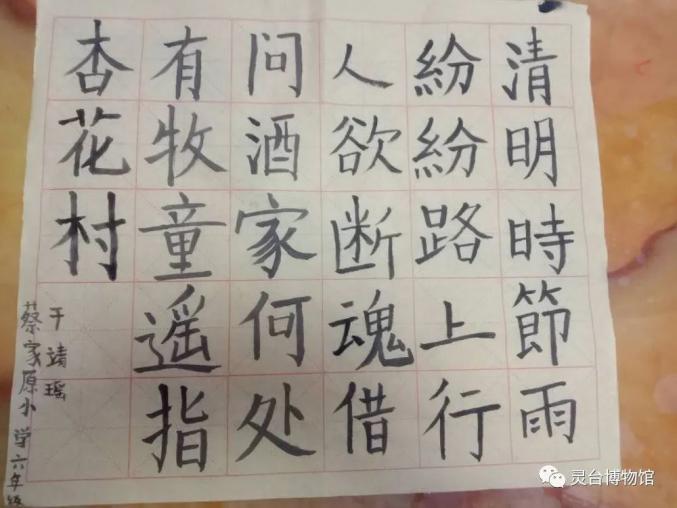 清明時節雨
紛紛路上行
人欲断魂借
问酒家何处
有牧童遥指
杏花村
于靖瑶
蔡家原小学六年级
灵台博物馆